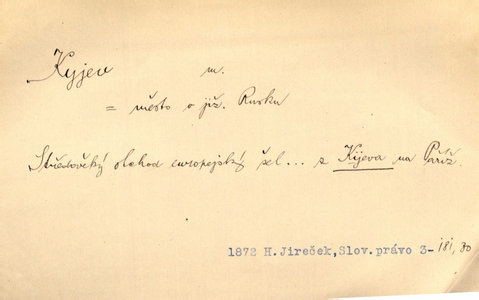 Kyjev m.
= město v již. Rusku
Středověký obchod evropejský šel... z Kijeva na Paříž.
1872 H. Jireček, Slov. právo 3-181,80